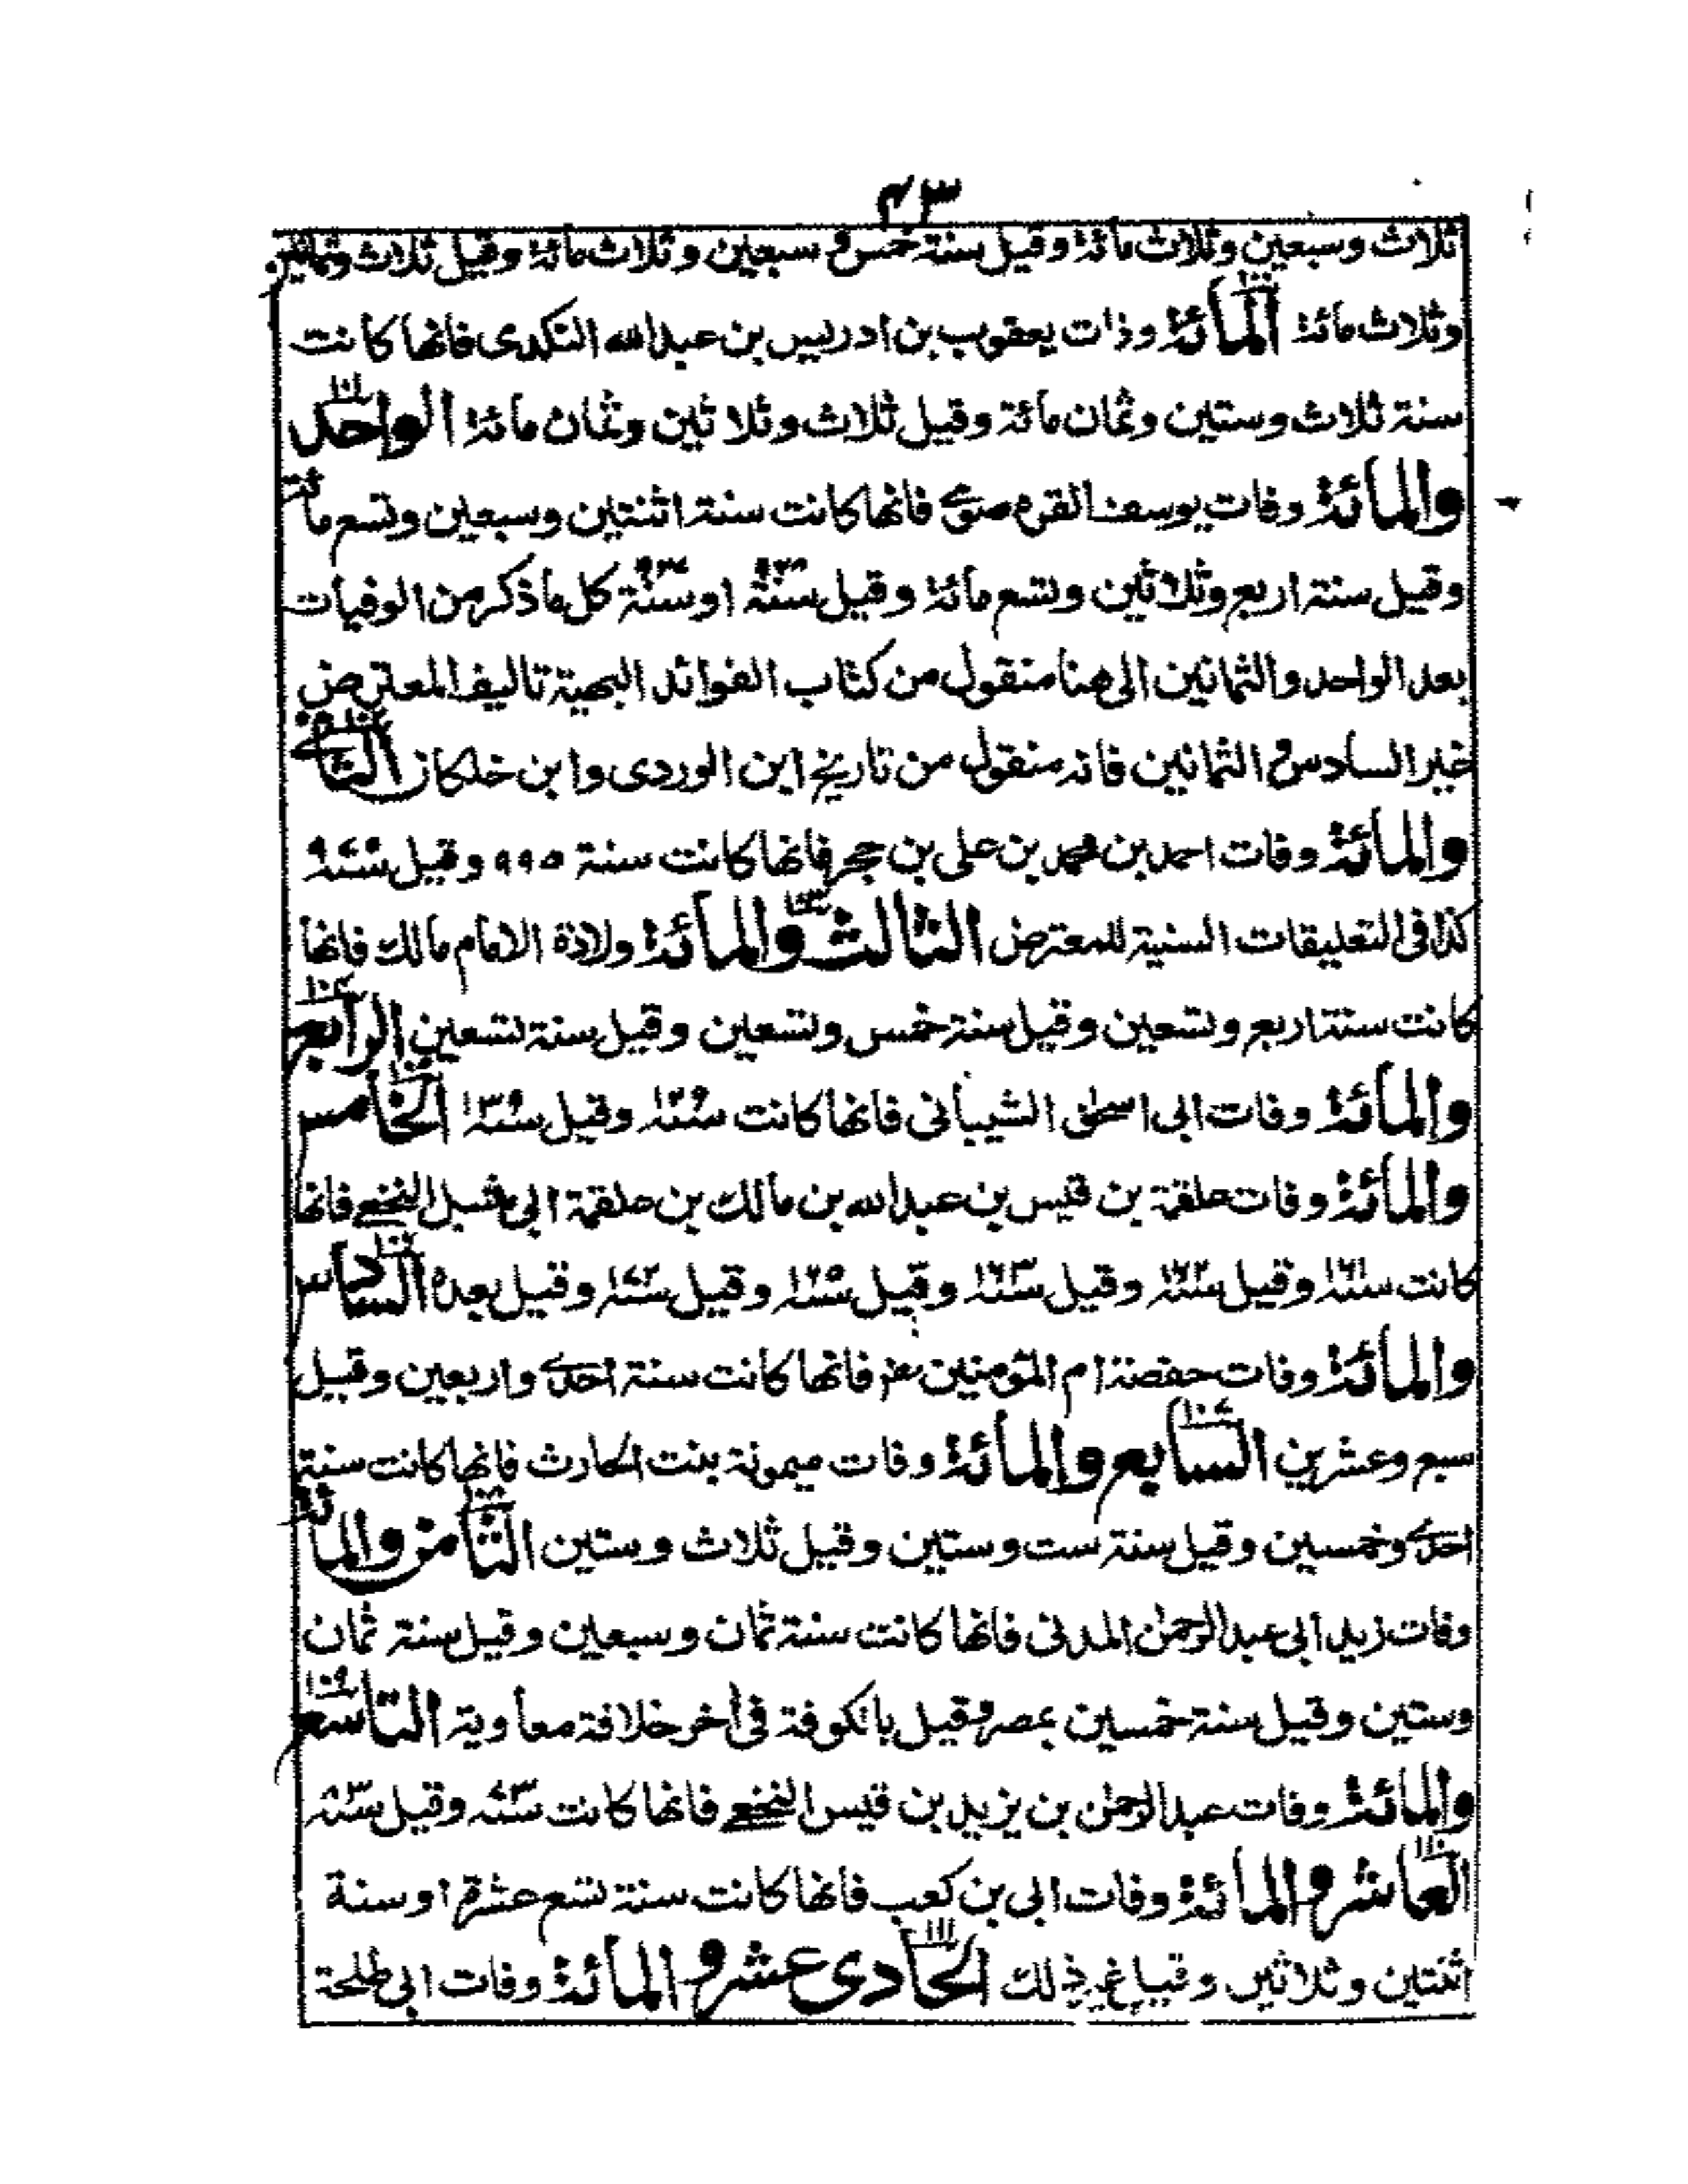 ٤٣
ثلاث وسبعين وثلاث مائة وقيل سنة خمس و سبعين وثلاث مائة وقيل ثلاث وثمانين
وثلاث مائة المائة وذات يعقوب بن ادريس بن عبدالله النكدى فانها كانت
سنة ثلاث وستين وثمان مائة وقيل ثلاث وثلاثين وثمان مائة الواحد ١٠١
والمائة وفات يوسف القره صوى فانها كانت سنة اثنتين وسبعين وتسع مائة
وقيل سنة اربع وثلاثين وتسع مائة وقيل سنة او سنة كل ما ذكر من الوفيات
بعد الواحد والثمانين الى هنا منقول من كتاب الفوائد البهية تاليف المعترض
غير السادس و الثمانين فانه منقول من تاريخ ابن الوردى وابن خلكان الثانى
والمائة وفات احمد بن محمد بن على بن حجر فانها كانت سنة ٩٩٥ وقيل سنة
كذا فى التعليقات السنية للمعترض الثالث والمائة ولادة الامام مالك فانها
كانت سنة اربع وتسعين وقيل سنة خمس وتسعين وقيل سنة تسعين الرابع ١٠٤
والمائة وفات ابى اسحٰق الشيبانى فانها كانت سنة وقيل سنة الخامس
والمائة وفات علقمة بن قيس بن عبدالله بن مالك بن علقمة ابى شبل النخعى فانها
كانت سنة وقيل سنة وقيل سنة وقيل سنة وقيل سنة وقيل بعده السادس
والمائة وفات حفصة ام المؤمنين فانها كانت سنة احدى واربعين وقيل
سبع وعشرين السابع ١٠٧ والمائة وفات ميمونة بنت الحارث فانها كانت سنة
احدى وخمسين وقيل سنة ست وستين وقيل ثلاث وستين الثامن والمائة
وفات زيد ابى عبدالرحمٰن المدنى فانها كانت سنة ثمان وسبعين وقيل سنة ثمان
وستين وقيل سنة خمسين بمصر وقيل بالكوفة فى اٰخر خلافة معاوية التاسع ١٠٩
والمائة وفات عبدالرحمٰن بن يزيد بن قيس النخعى فانها كانت سنة وقيل سنة
العاشر و المائة وفات ابى بن كعب فانها كانت سنة تسع عشرة او سنة
اثنتين وثلاثين وقيل غير ذلك الحادى عشر ١١١ و المائة وفات ابى طلحة